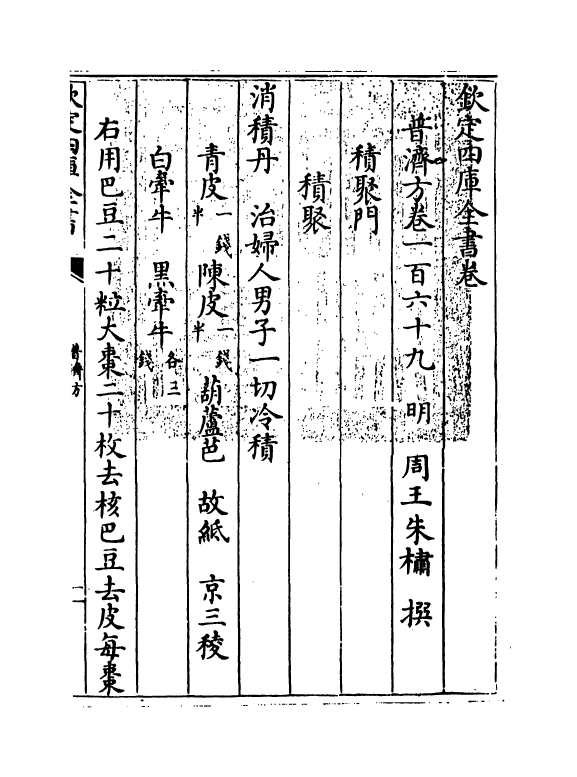 欽定四庫全書卷
普濟方卷一百六十九 明 周王朱橚 撰
積聚門
積聚
消積丹 治婦人男子一切冷積
青皮一錢半 陳皮一錢半 葫蘆芭 故紙 京三稜
白牽牛 黑牽牛各三錢
右用巴豆二十粒大棗二十枚去核巴豆去皮每棗
欽定四庫全書
普濟方
一